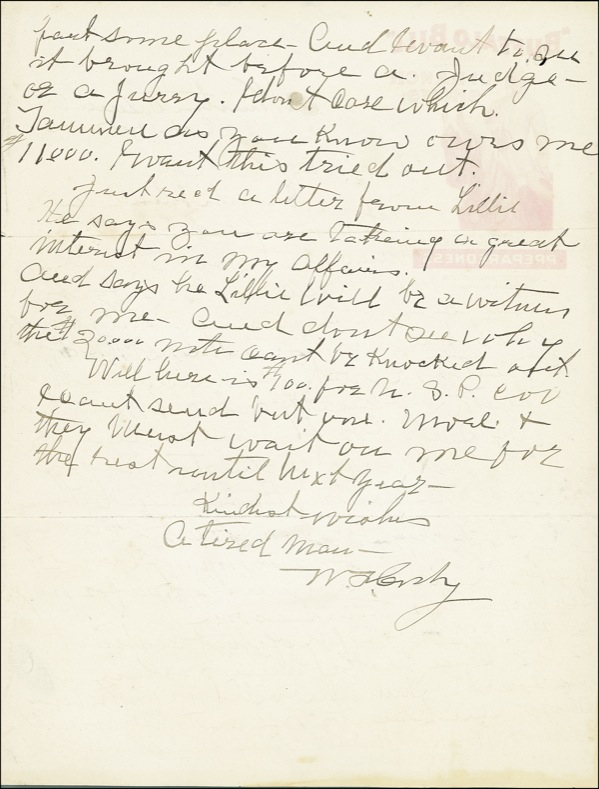 fact some place - And I want to see
it brought before a. Judge -
or a Jurry. I dont care which.
Tammen as you know owes me
$11000. I want this tried out.
Just recd a letter from Lillie
He says you are taking a great
interest in my affairs.
And says he Lillie will be a witness
for me - And dont see why
the $20000 note cant be Knocked out.
Well here is $100. for N. S. P. Co
I cant send but one. more. &
they must wait on me for
the rest until next year -
Kindest wishes
A tired man -
W F Cody
BUFFALO BILL
PREPAREDNESS